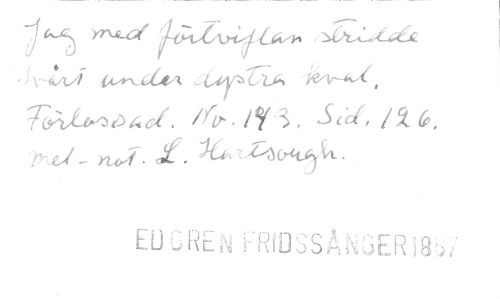 Jag med förtviflan stridde
Svårt under dystra kval.
Förlossad. No. 143. Sid. 126.
mel-not. L. Hartsough.
EDGREN FRIDSSÅNGER 1867